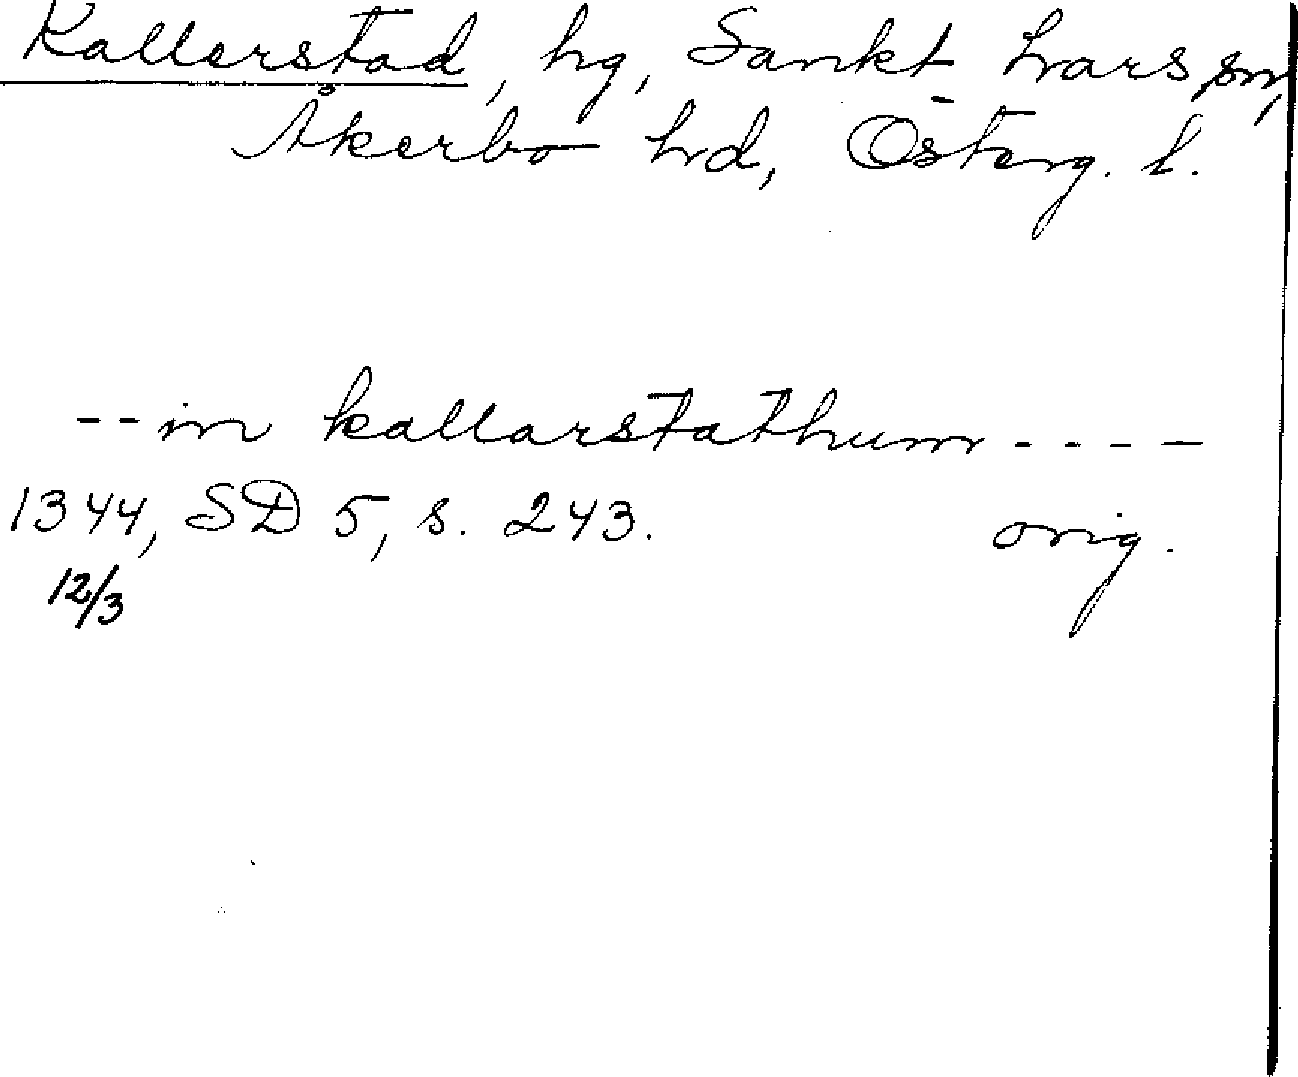 Kallerstad, hg, Sankt Lars sn,
Åkerbo hd, Österg. l.
-- in kallarstathum - - - -
1344, SD 5, s. 243. orig.
12/3